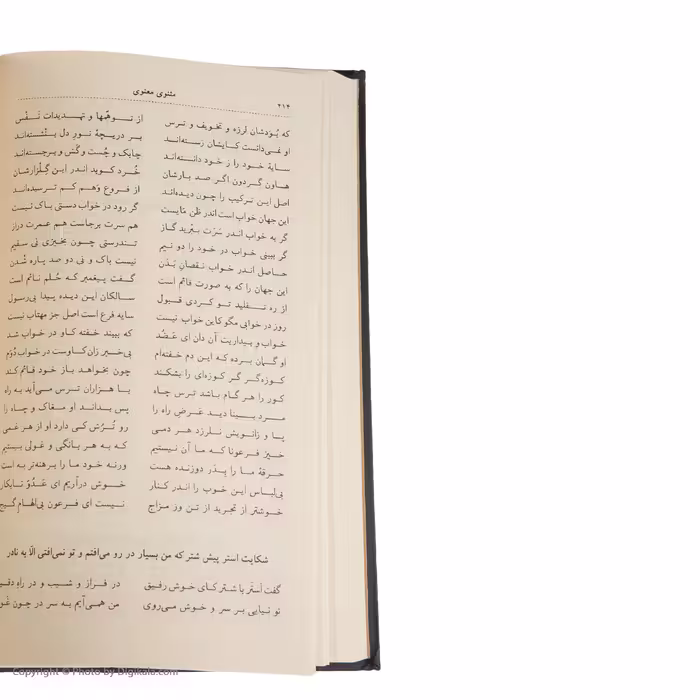 مثنوی معنوی
۴۱۴
که بُوَدشان لرزه و تخویف و ترس از توهّمها و تهدیدات نَفْس
او نمی‌دانست کایشان رَسته‌اند بر دریچهٔ نورِ دل بنشسته‌اند
سایهٔ خود را ز خود دانسته‌اند چابک و چُست و گَش و برجسته‌اند
هاون گردون اگر صد بارشان خُرد کوبد اندر این گِلزارشان
اصل این ترکیب را چون دیده‌اند از فروعِ وَهم کم ترسیده‌اند
این جهان خواب است اندر ظَن مَایست گر رود در خواب دستی باک نیست
گر به خواب اندر سَرَت بُبْرید گاز هم سرت برجاست هم عمرت دراز
گر ببینی خواب در خود را دو نیم تندرستی چون بخیزی نی سقیم
حاصل اندر خواب نقصانِ بَدَن نیست باک و نی دو صد پاره شُدن
این جهان را که به صورت قائم است گفت پیغمبر که حُلم نائم است
از ره تقلید تو کردی قبول سالکان این دیده پیدا بی‌رسول
روز در خوابی مگو کاین خواب نیست سایه فرع است اصل جز مهتاب نیست
خواب و بیداریت آن دان ای عَضُد که ببیند خفته کاو در خواب شد
او گمان برده که این دم خفته‌ام بی‌خبر زان کاوست در خواب دُوُم
کوزه‌گر گر کوزه‌ای را بشکند چون بخواهد باز خود قائم کند
کور را هر گام باشد ترس چاه با هزاران ترس می‌آید به راه
مرد بینا دید عَرضِ راه را پس بداند او مغاک و چاه را
پا و زانویش نلرزد هر دمی رو تُرُش کی دارد او از هر غمی
خیز فرعونا که ما آن نیستیم که به هر بانگی و غولی بیستیم
خرقهٔ ما را بِدَر دوزنده هست ورنه خود ما را برهنه‌تر به است
بی‌لباس این خوب را اندر کنار خوش درآریم ای عَدُوّ نابکار
خوشتر از تجرید از تن وز مزاج نیست ای فرعونِ بی‌الهامِ گیج
شکایت استر پیش شتر که من بسیار در رو می‌افتم و تو نمی‌افتی الّا به نادر
گفت اَستَر با شتر کای خوش رفیق در فراز و شیب و در راهِ دقیق
تو نیایی بر سر و خوش می‌روی من همی‌آیم به سر در چون غوی
Copyright © Photo by Digikala.com